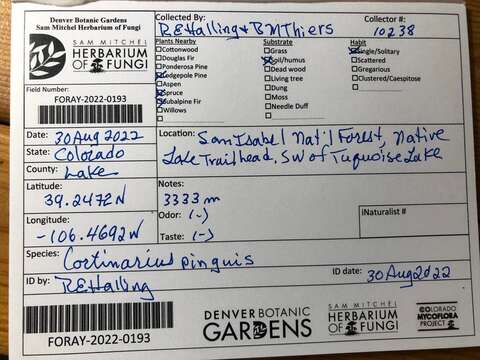 Denver Botanic Gardens
Sam Mitchel Herbarium of Fungi
SAM MITCHEL
HERBARIUM
OF FUNGI
Field Number:
FORAY-2022-0193
Collected By: REHalling + BMThiers
Collector #: 10238
Plants Nearby
Cottonwood
Douglas Fir
Ponderosa Pine
Lodgepole Pine
Aspen
Spruce
Subalpine Fir
Willows
Substrate
Grass
Soil/humus
Dead wood
Living tree
Dung
Moss
Needle Duff
Habit
Single/Solitary
Scattered
Gregarious
Clustered/Caespitose
Date: 30 Aug 2022
State: Colorado
County: Lake
Latitude: 39.2472N
Longitude: -106.4692W
Location: San Isabel Nat'l Forest, Native
Lake Trailhead, SW of Turquoise Lake
Notes: 3333 m
Odor: (-)
Taste: (-)
iNaturalist #
Species: Cortinarius pinguis
ID by: REHalling
ID date: 30 Aug 2022
FORAY-2022-0193
DENVER BOTANIC
GARDENS
SAM MITCHEL
HERBARIUM
OF FUNGI
COLORADO
MYCOFLORA
PROJECT